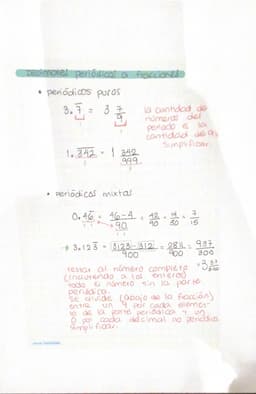 Decimales periódicos a fracciones
• periódicos puros
3.7̅ = 3 7/9
la cantidad de
números del
periodo es la
cantidad de 9s
simplificar.
1.3̅4̅2̅ = 1 342/999
• periódicos mixtos
0.46̅ = 46-4/90 = 42/90 = 7/15
restar al número completo
(incluyendo a los enteros)
todo el número sin la parte
periódica.
Se divide (abajo de la fracción)
entre un 9 por cada elemen-
to de la parte periódica y un
0 por cada decimal no periódico
simplificar.